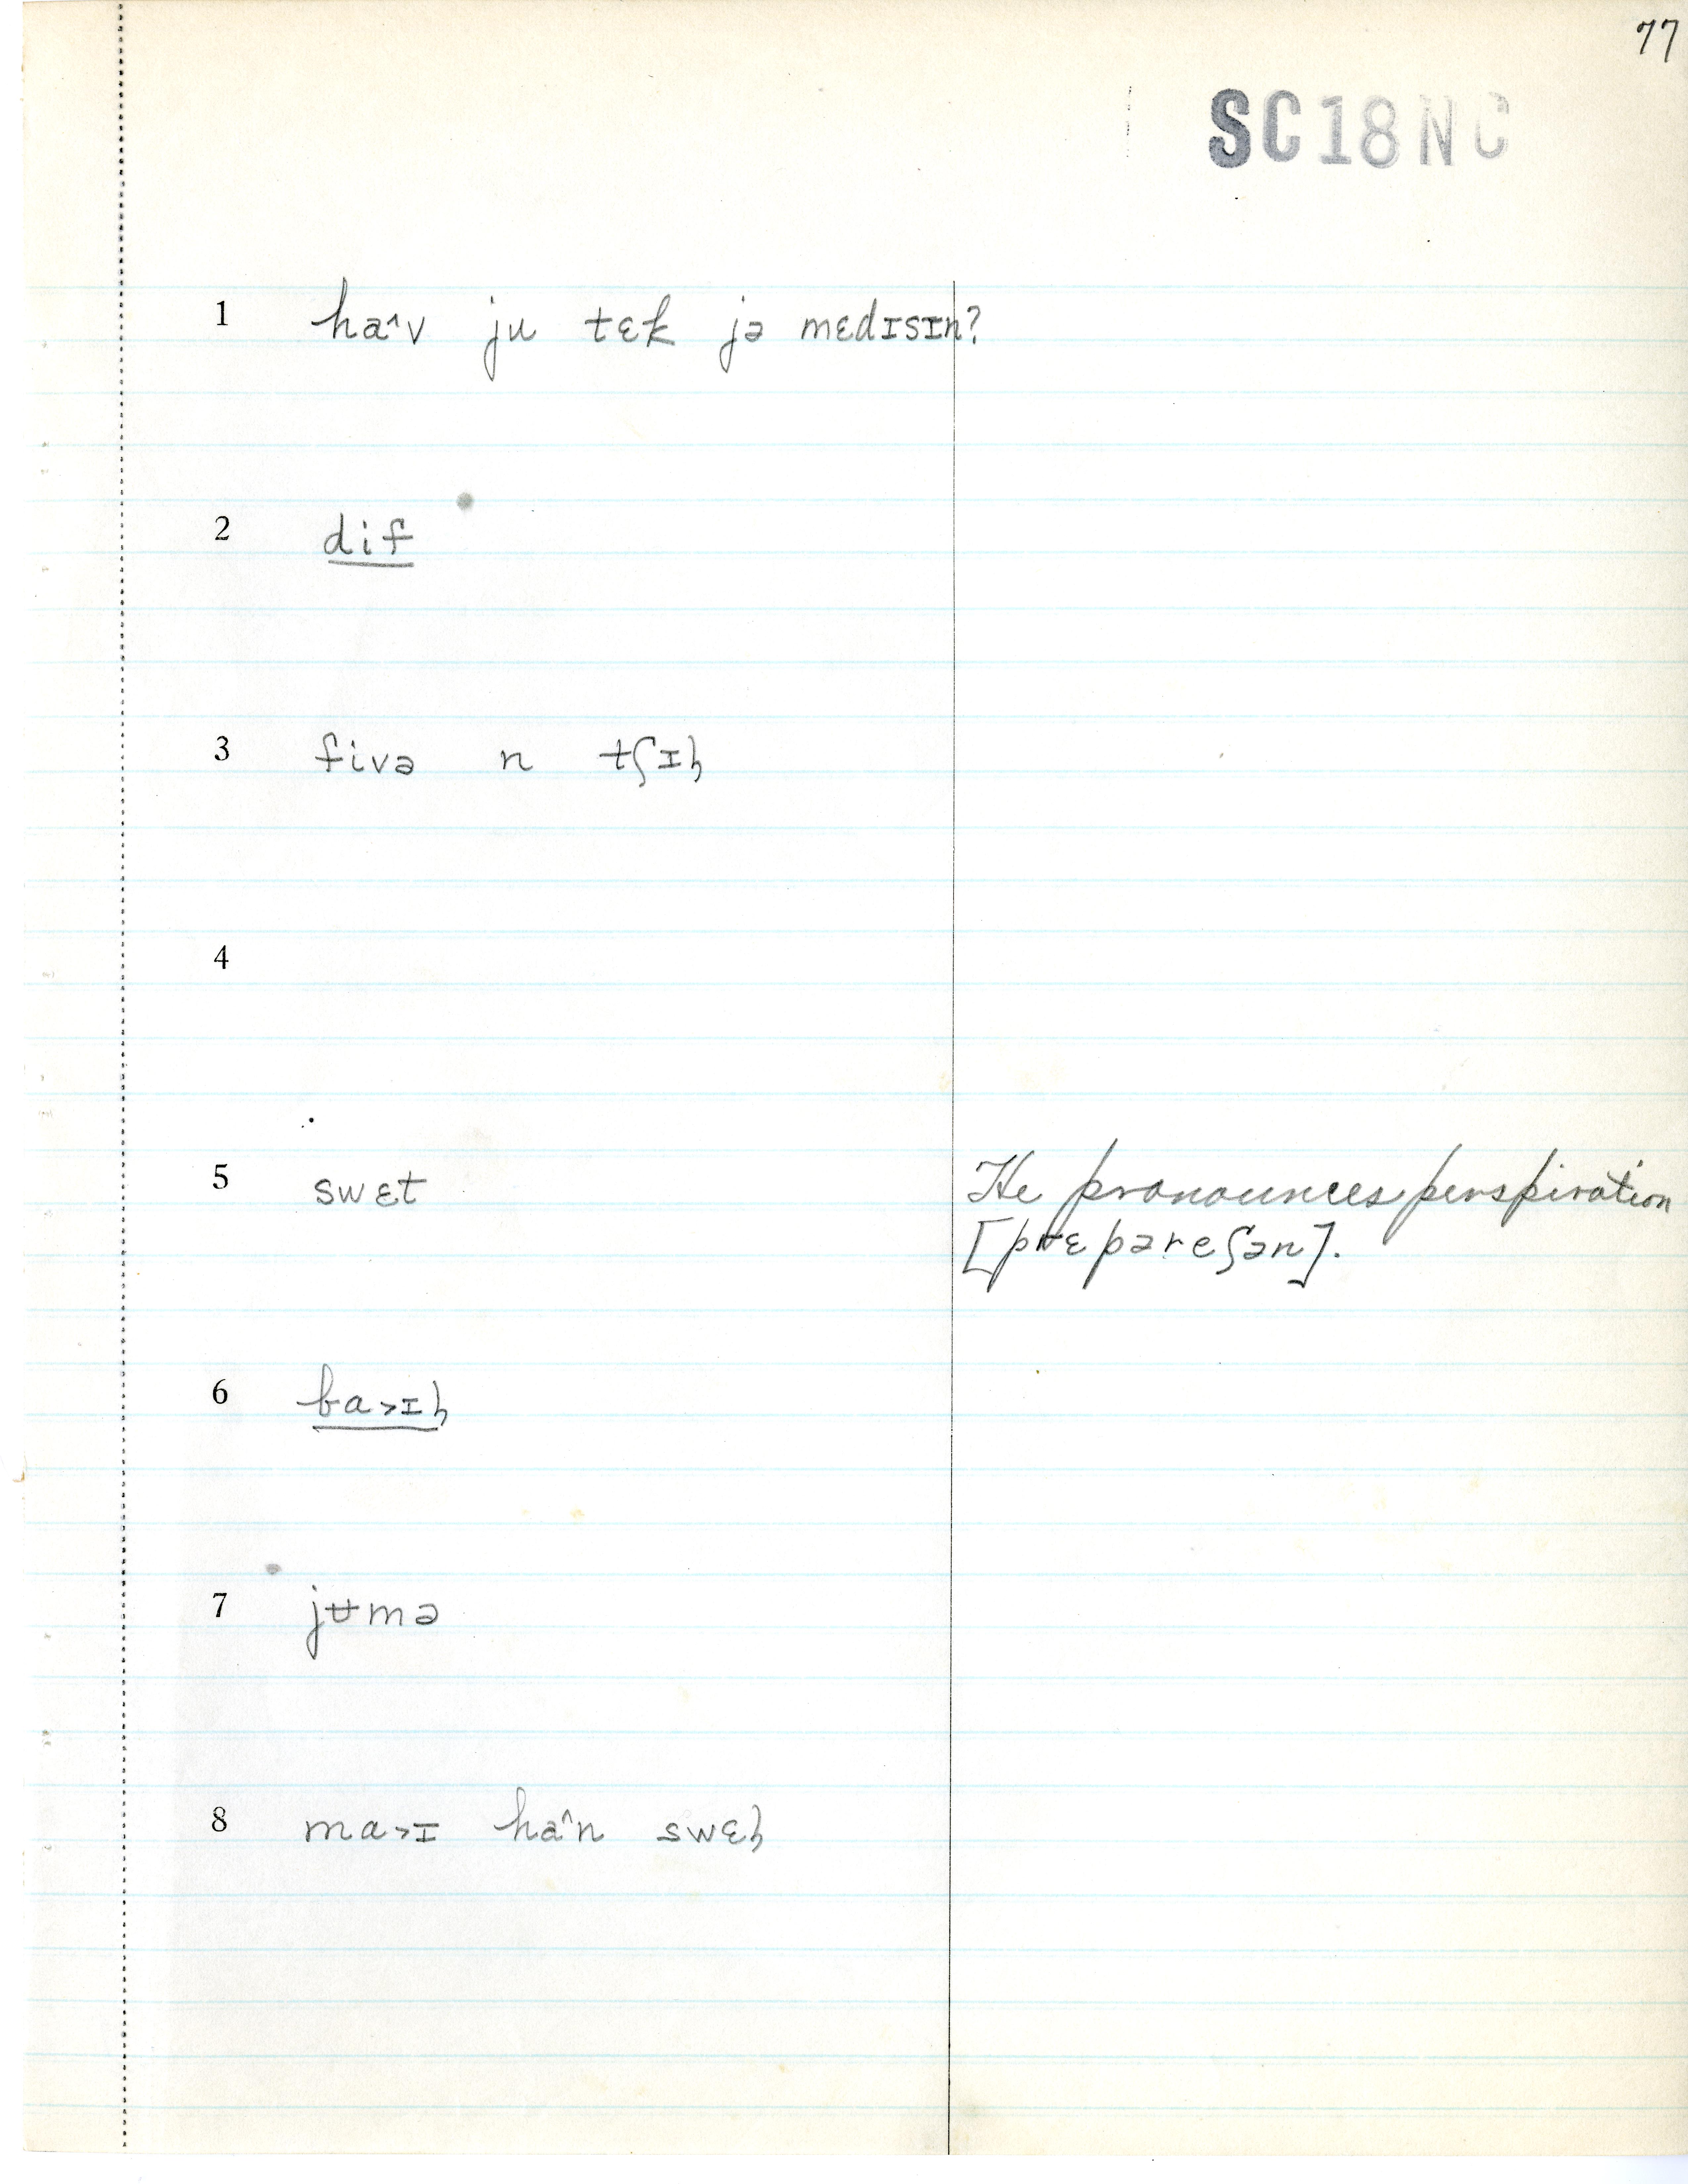 77
SC18NC
1 ha^v ju tɛk jə mɛdɪsɪn?
2 dif
3 fivə n tʃɪl
4
5 swɛt He pronounces perspiration
[prɛpəreʃən].
6 ba˃ɪl
7 jʉmə
8 ma˃ɪ ha^n swɛl